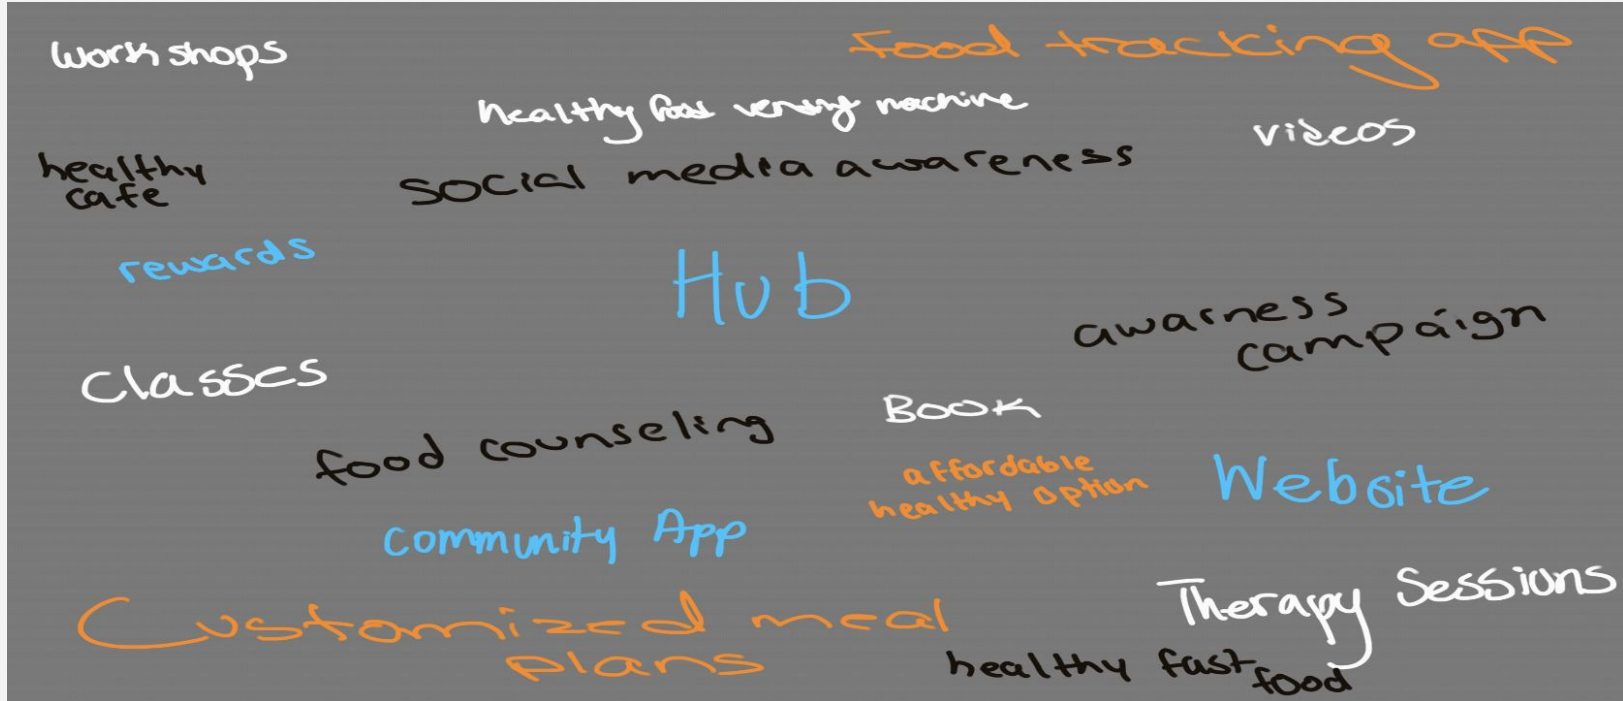 workshops
Food tracking app
healthy food vending machine
videos
healthy
cafe
social media awareness
rewards
Hub
awarness
campaign
Classes
Book
food counseling
affordable
healthy option
Website
community App
Therapy Sessions
Customized meal
plans
healthy fast
food